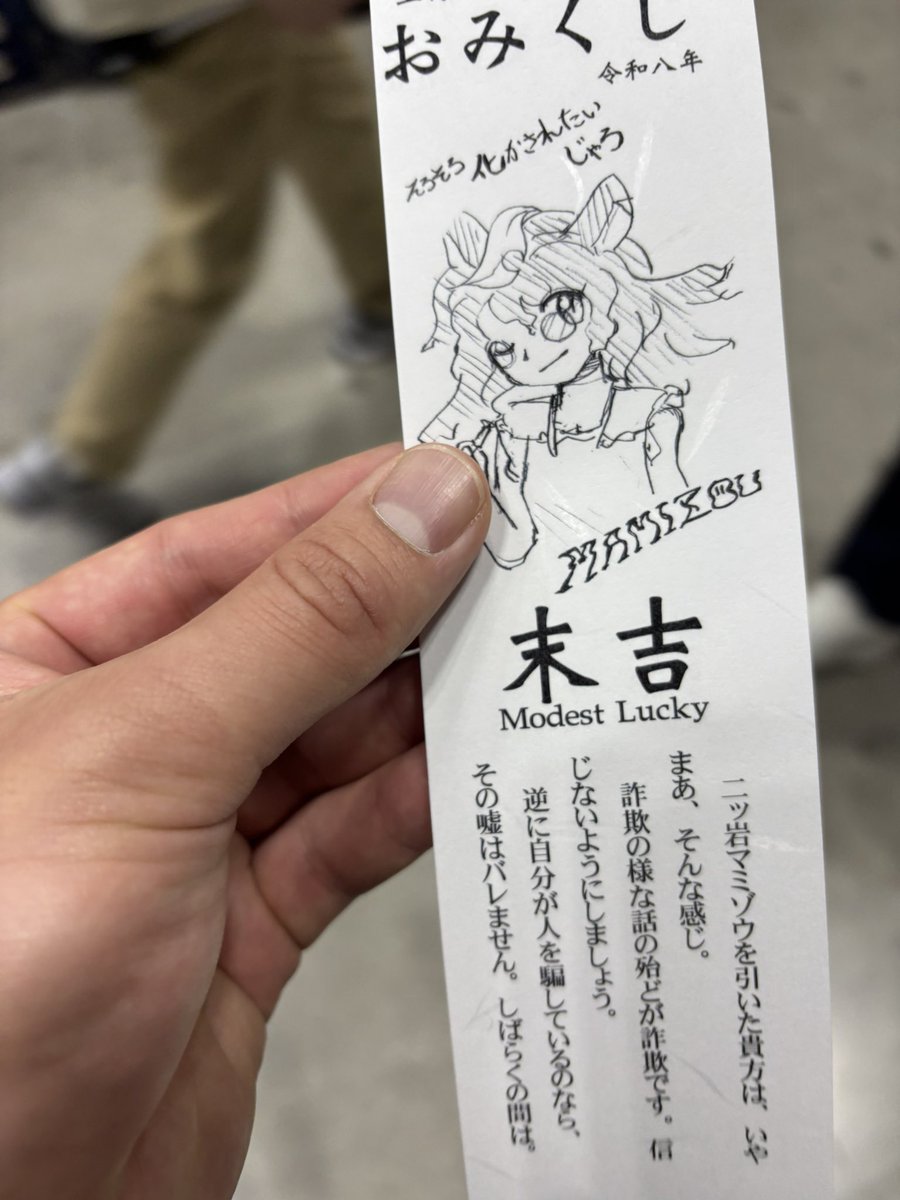 おみくじ
令和八年
そろそろ 化かされたい
じゃろ
MAMIZOU
末吉
Modest Lucky
二ッ岩マミゾウを引いた貴方は、いや
まあ、そんな感じ。
詐欺の様な話の殆どが詐欺です。信
じないようにしましょう。
逆に自分が人を騙しているのなら、
その嘘はバレません。しばらくの間は。